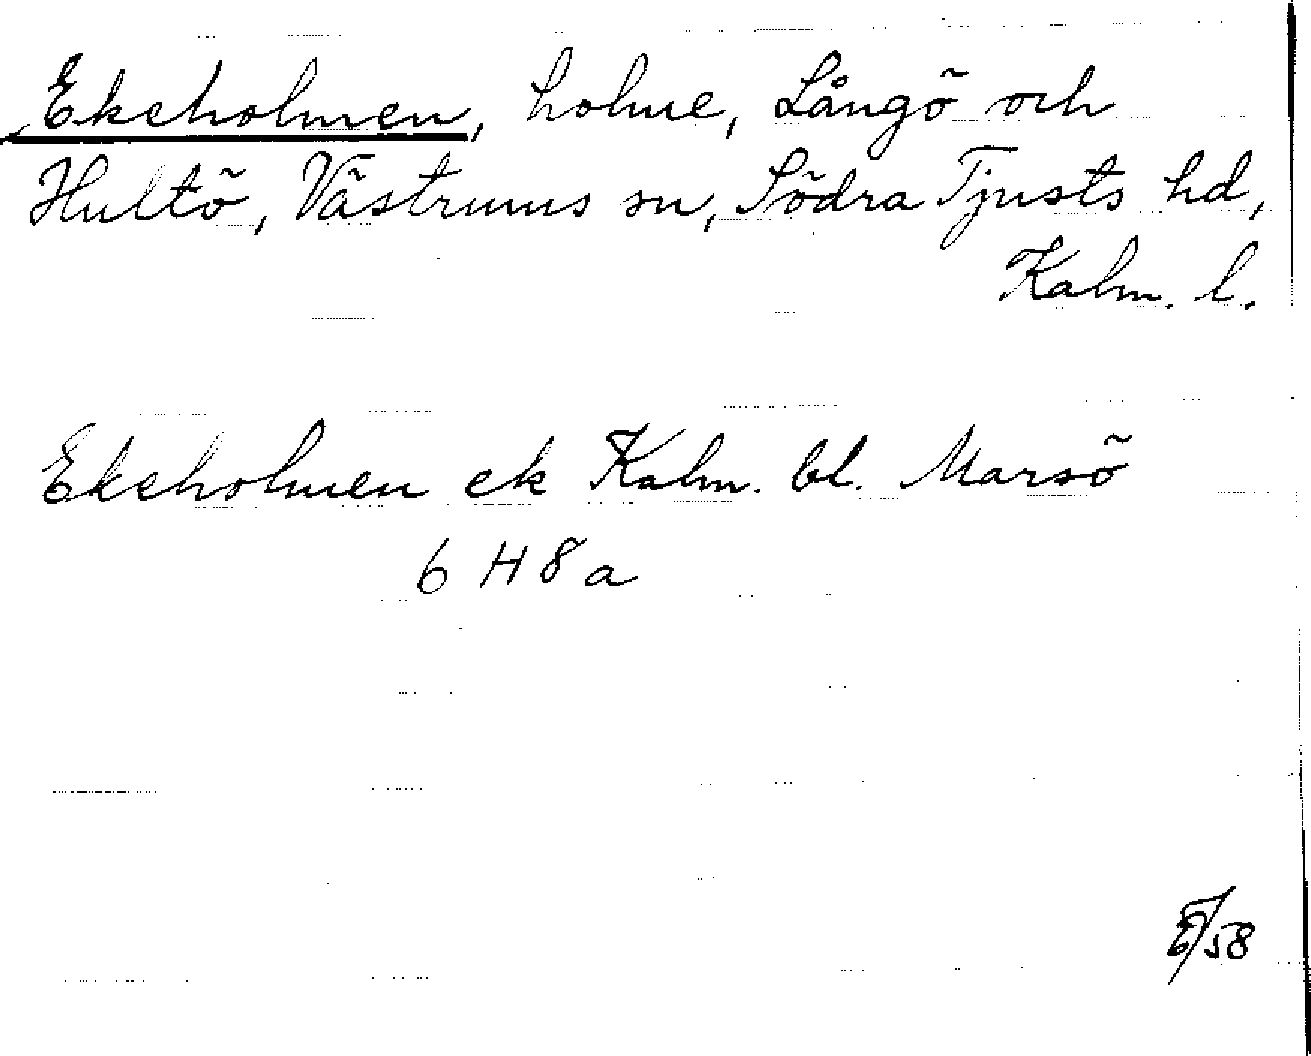 Ekeholmen, holme, Långö och
Hultö, Västrums sn, Södra Tjusts hd,
Kalm. l.
Ekeholmen ek Kalm. bl. Marsö
6 H 8 a